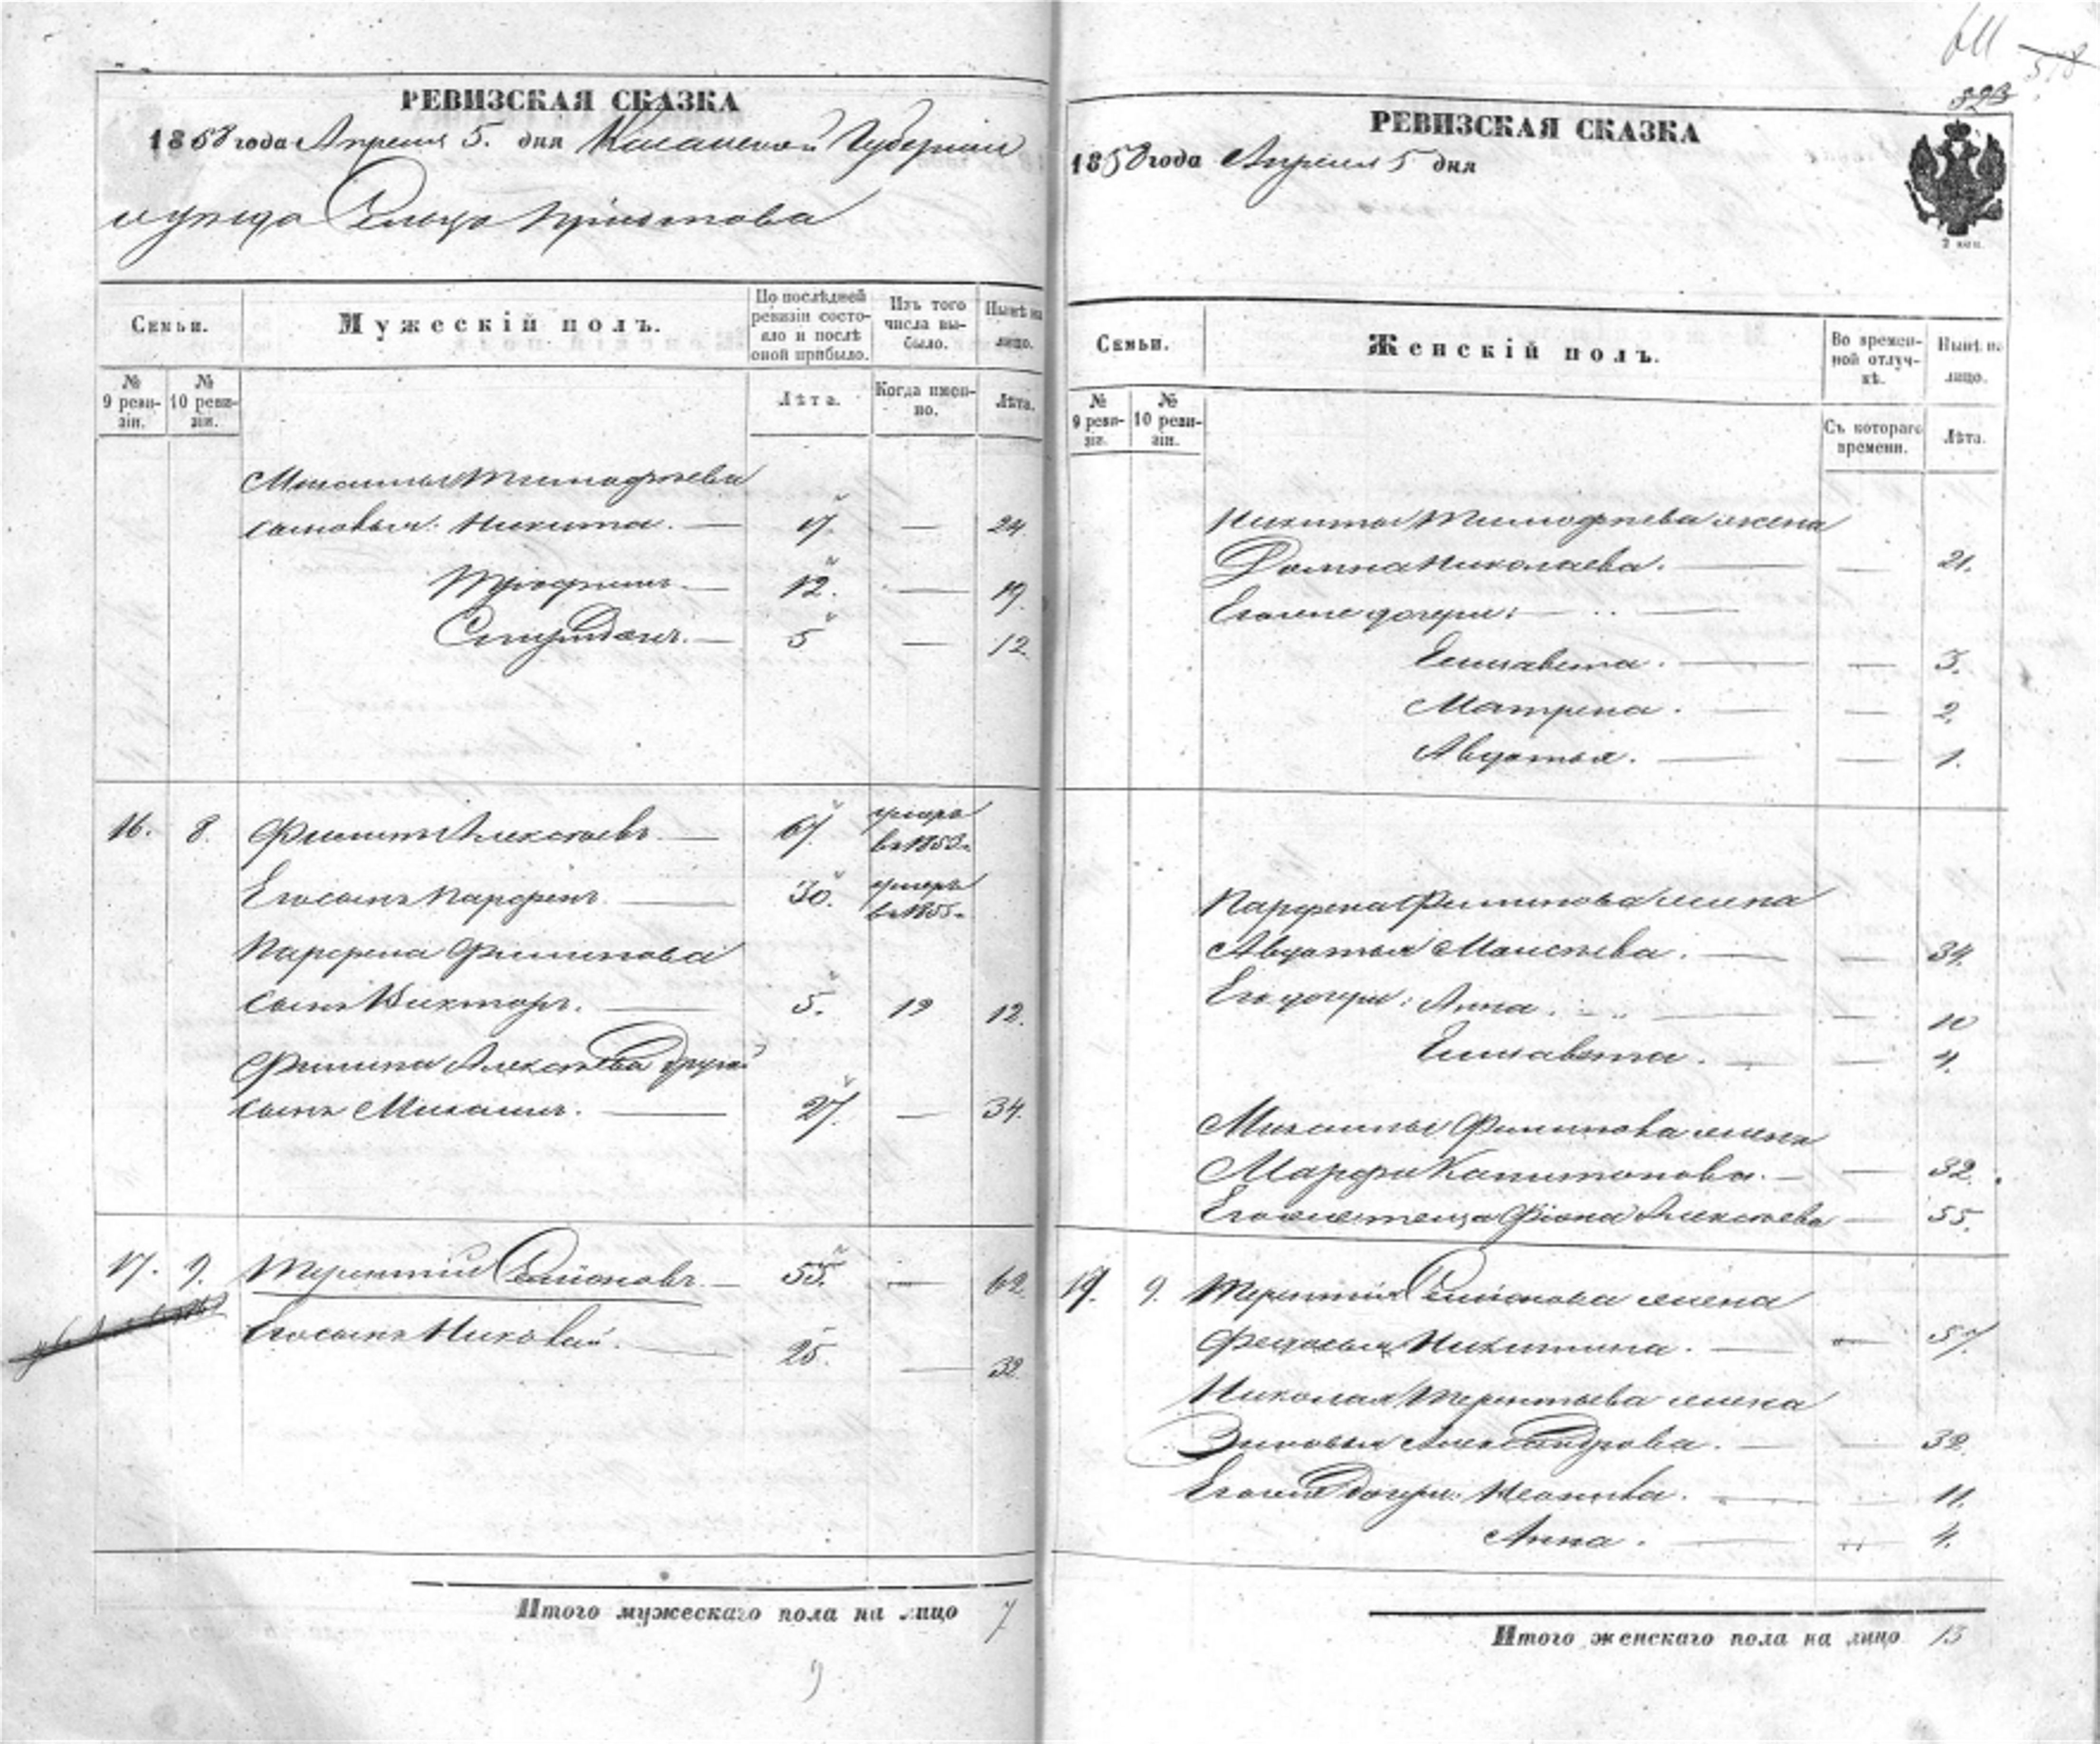 РЕВИЗСКАЯ СКАЗКА
1858 года Апреля 5. дня Казанской Губернии
уезда Сельца
Семьи.
Мужескій полъ.
По послѣдней ревизіи состояло и послѣ оной прибыло.
Изъ того числа выбыло.
Нынѣ на лицо.
№ 9 ревизіи.
№ 10 ревизіи.
Лѣта.
Когда именно.
Лѣта.
Тимофѣева
сыновья: Никита. — 17. — 24.
Трофимъ. — 12. — 19.
Спиридонъ. — 5 — 12
16. 8. Филипъ Алексѣевъ. — 67. умеръ
въ 1853
Его сынъ Парфенъ. — 30. умеръ
въ 1855
Парфена Филипова
сынъ Викторъ. — 5. 12.
Филипа Алексѣева другой
сынъ Михаилъ. — 27. — 34.
17. 9. Терентій Семионовъ. — 55. — 62.
Его сынъ Николай. — 25. — 32.
Итого мужескаго пола на лицо 7
9
611
518
РЕВИЗСКАЯ СКАЗКА
1858 года Апреля 5 дня
2 коп.
Семьи.
Женскій полъ.
Во временной отлучкѣ.
Нынѣ на лицо.
№ 9 ревизіи.
№ 10 ревизіи.
Съ котораго времени.
Лѣта.
Никиты Тимофѣева жена
Домна Николаева. — — 21.
Его же дочери: —
Елисавета. — — 3.
Матрена. — — 2.
Авдотья. — — 1.
Парфена Филипова жена
Авдотья Моисѣева. — — 34.
Его дочери: Анна. — — 10
Елисавета. — — 4.
Михаилы Филипова жена
Марфа Капитонова. — — 32.
Фіона Алексѣева — 55.
17. 9. Терентія Семионова жена
Федосья Никитина. — — 57.
Николая Терентьева жена
Зиновья Александрова. — — 32.
Его же дочери: Неонила. — — 11.
Анна. — 4.
Итого женскаго пола на лицо 13